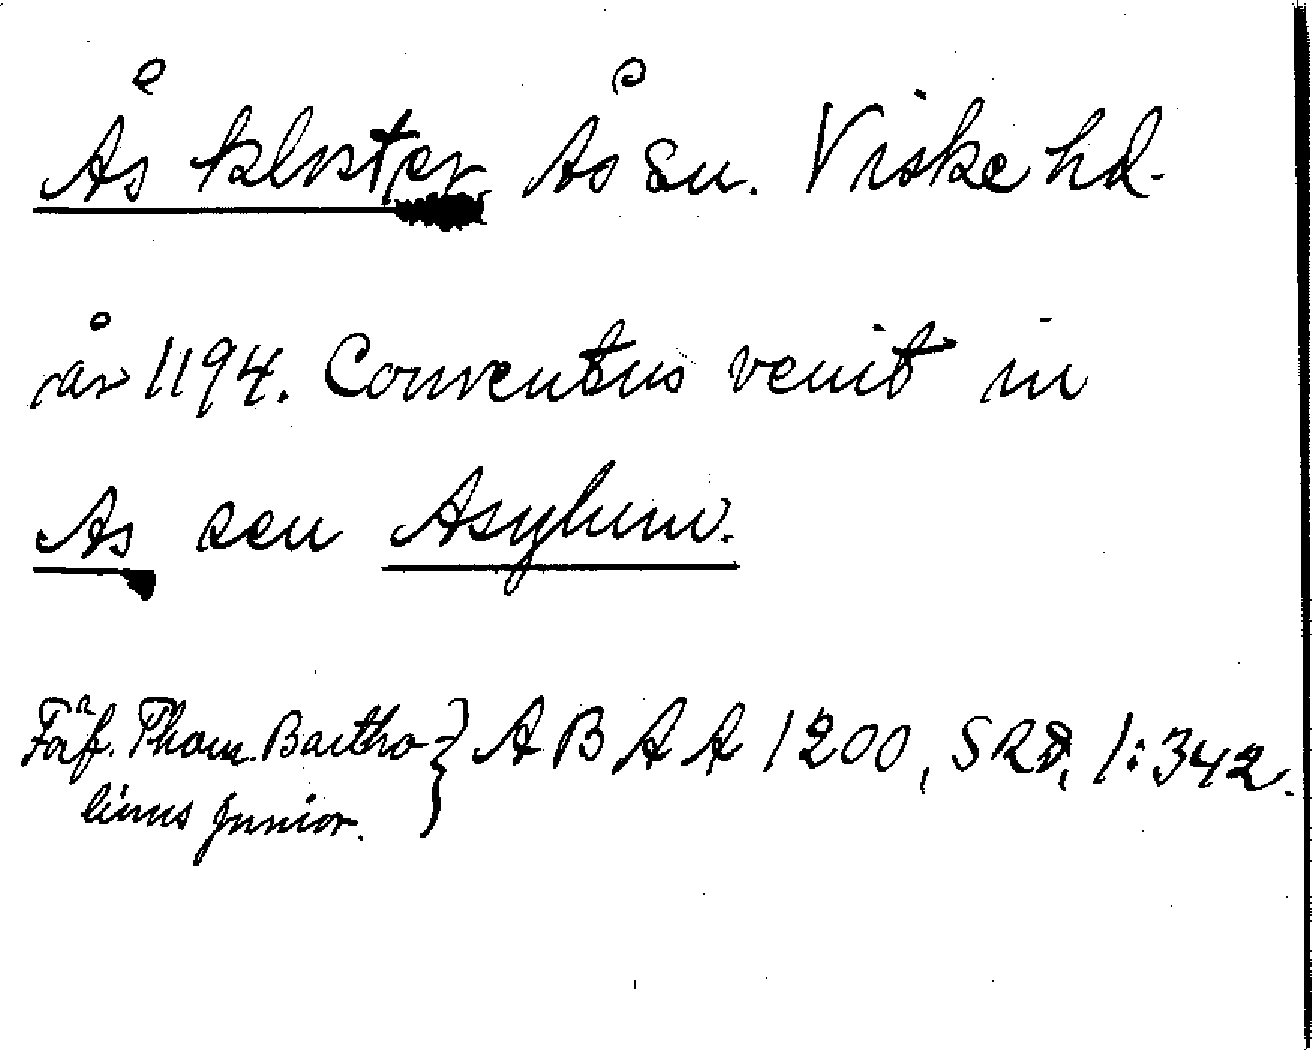 Ås kloster Ås sn. Viske hd.
år 1194. Conventus venit in
As seu Asylum.
Förf. Thom. Bartho-} A B A A 1200, SRD, 1:342.
linus junior.